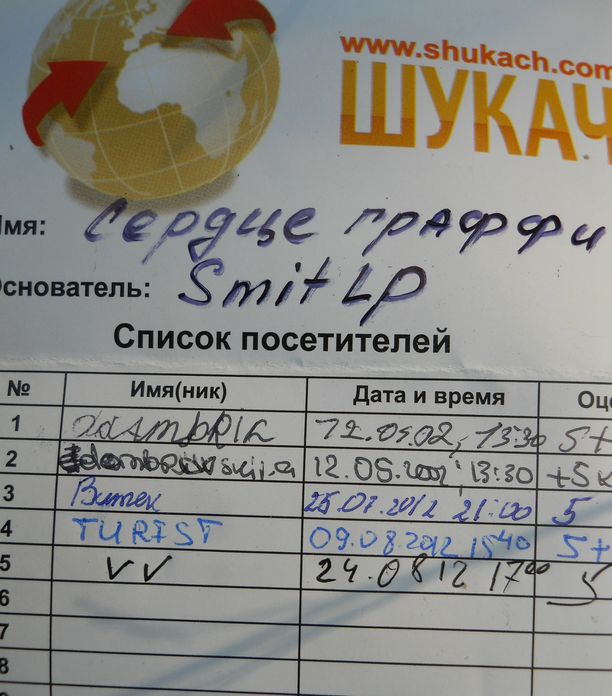 www.shukach.com
ШУКАЧ
Имя: Сердце граффи
Основатель: Smit LP
Список посетителей
№ Имя(ник) Дата и время Оце
1 13:30 5+
2 13:30 +5
3 Витек 25.07.2012 21:00 5
4 TURIST 09.08.2012 15 40 5+
5 VV 24.08 12 17 00 5
6
7
8